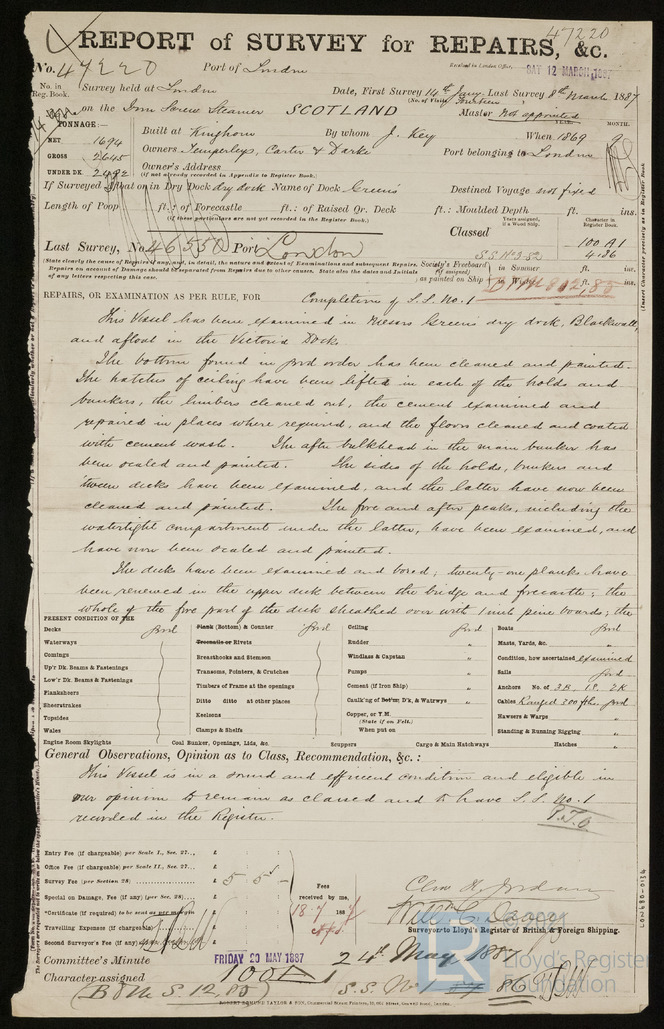 47220
REPORT of SURVEY for REPAIRS, &c.
No. 47220 Port of London
Received in London Office, SAT 12 MARCH 1887
No. in Reg. Book. Survey held at London Date, First Survey 14th Jany. Last Survey 8th March 1887
(No. of Visits) fourteen
on the Iron Screw Steamer SCOTLAND Master Not appointed
TONNAGE:— YEARS. MONTH.
NET 1694 Built at Kinghorn By whom J. Key When 1869 9
GROSS 2645 Owners Temperleys, Carter & Darke Port belonging to London
UNDER DK 2492 Owner's Address
(if not already recorded in Appendix to Register Book.)
If Surveyed Afloat or in Dry Dock dry dock Name of Dock Greens Destined Voyage not fixed
Length of Poop ft.: of Forecastle ft.: of Raised Qr. Deck ft.: Moulded Depth ft. ins.
(if these particulars are not yet recorded in the Register Book.)
Years assigned, if a Wood Ship. Character in Register Book.
Classed 100 A1
4.86
Last Survey, No. 46550 Port London
(State clearly the cause of Repairs if any, and, in detail, the nature and extent of Examinations and subsequent Repairs.
Repairs on account of Damage should be separated from Repairs due to other causes. State also the dates and Initials
of any letters respecting this case.
Society's Freeboard (if assigned) as painted on Ship in Summer ft. ins.
in Winter ft. ins.
REPAIRS, OR EXAMINATION AS PER RULE, FOR Completion of S.S. No. 1
This Vessel has been examined in Messrs Greens dry dock, Blackwall,
and afloat in the Victoria Docks
The bottom found in good order has been cleaned and painted.
The hatches of ceiling have been lifted in each of the holds and
bunkers, the limbers cleaned out, the cement examined and
repaired in places where required, and the floors cleaned and coated
with cement wash. The after bulkhead in the main bunker has
been scaled and painted. The sides of the holds, bunkers and
'tween decks have been examined, and the latter have now been
cleaned and painted. The fore and after peaks, including the
watertight compartment under the latter, have been examined, and
have now been scaled and painted.
The decks have been examined and bored; twenty-one planks have
been renewed in the upper deck between the bridge and forecastle; the
whole of the fore part of the deck sheathed over with 1 inch pine boards; the
PRESENT CONDITION OF THE
Decks good
Waterways
Comings
Up'r Dk. Beams & Fastenings
Low'r Dk. Beams & Fastenings
Planksheers
Sheerstrakes
Topsides
Wales
Engine Room Skylights
Plank (Bottom) & Counter good
Treenails or Rivets
Breasthooks and Stemson
Transoms, Pointers, & Crutches
Timbers of Frame at the openings
Ditto ditto at other places
Keelsons
Clamps & Shelfs
Coal Bunker, Openings, Lids, &c.
Ceiling good
Rudder "
Windlass & Capstan "
Pumps "
Cement (if Iron Ship) "
Caulk'ng of Bot'm, D'k, & Watrwys "
Copper, or Y.M.
(State if on Felt.)
When put on
Scuppers Cargo & Main Hatchways
Boats good
Masts, Yards, &c. "
Condition, how ascertained examined
Sails good
Anchors No. of 3B. 1S. 2K
Cables Ranged 300 fths. good
Hawsers & Warps "
Standing & Running Rigging "
Hatches "
General Observations, Opinion as to Class, Recommendation, &c. :
This Vessel is in a sound and efficient condition and eligible in
our opinion to remain as classed and to have S.S. No. 1
recorded in the Register.
P.T.O
Entry Fee (if chargeable) per Scale I., Sec. 27... £
Office Fee (if chargeable) per Scale II., Sec. 27... £
Survey Fee (per Section 28) £ 5 5 -
Special on Damage, Fee (if any) (per Sec. 28) £
*Certificate (if required) to be sent as per margin
Travelling Expenses (if chargeable) £
Second Surveyor's Fee (if any) £
Fees received by me,
188
Surveyor to Lloyd's Register of British & Foreign Shipping.
Committee's Minute FRIDAY 20 MAY 1887 24th May 1887
Character assigned 100 A1
B & M S. 12,85 S.S. No 1 86
ROBERT EDMUND TAYLOR & SON
LON680-0134
Lloyd's Register
Foundation